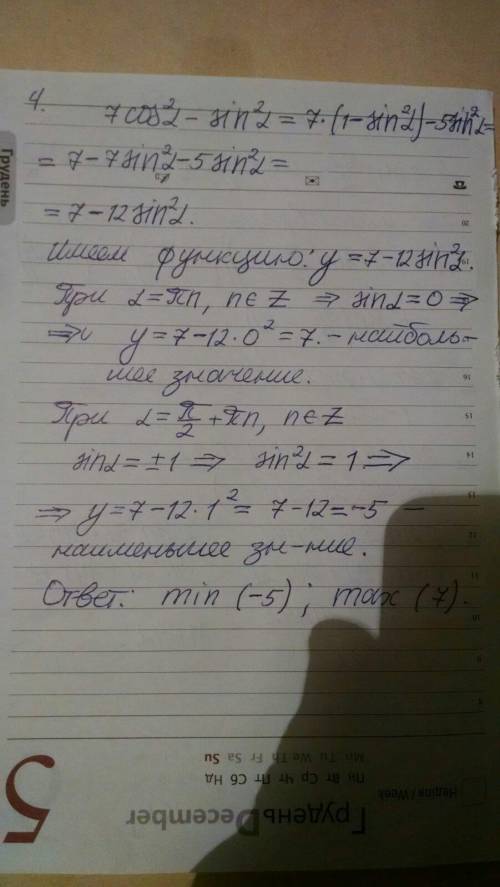 4.
7cos²α - sin²α = 7·(1-sin²α)-5sin²α=
= 7-7sin²α-5sin²α=
= 7-12sin²α.
Имеем функцию: y=7-12sin²α.
При α=πn, n∈Z ⇒ sinα=0 ⇒
⇒ y=7-12·0²=7.-наиболь-
шее значение.
При α=π/2+πn, n∈Z
sinα=±1 ⇒ sin²α=1 ⇒
⇒ y=7-12·1²= 7-12=-5 -
наименьшее зн-ние.
Ответ: min (-5); max (7).
Грудень
20
19
16
15
14
13
12
11
10
9
8
Неділя / Week
Пн Вт Ср Чт Пт Сб Нд
Mn Tu We Th Fr Sa Su
ГруденьDecember
5